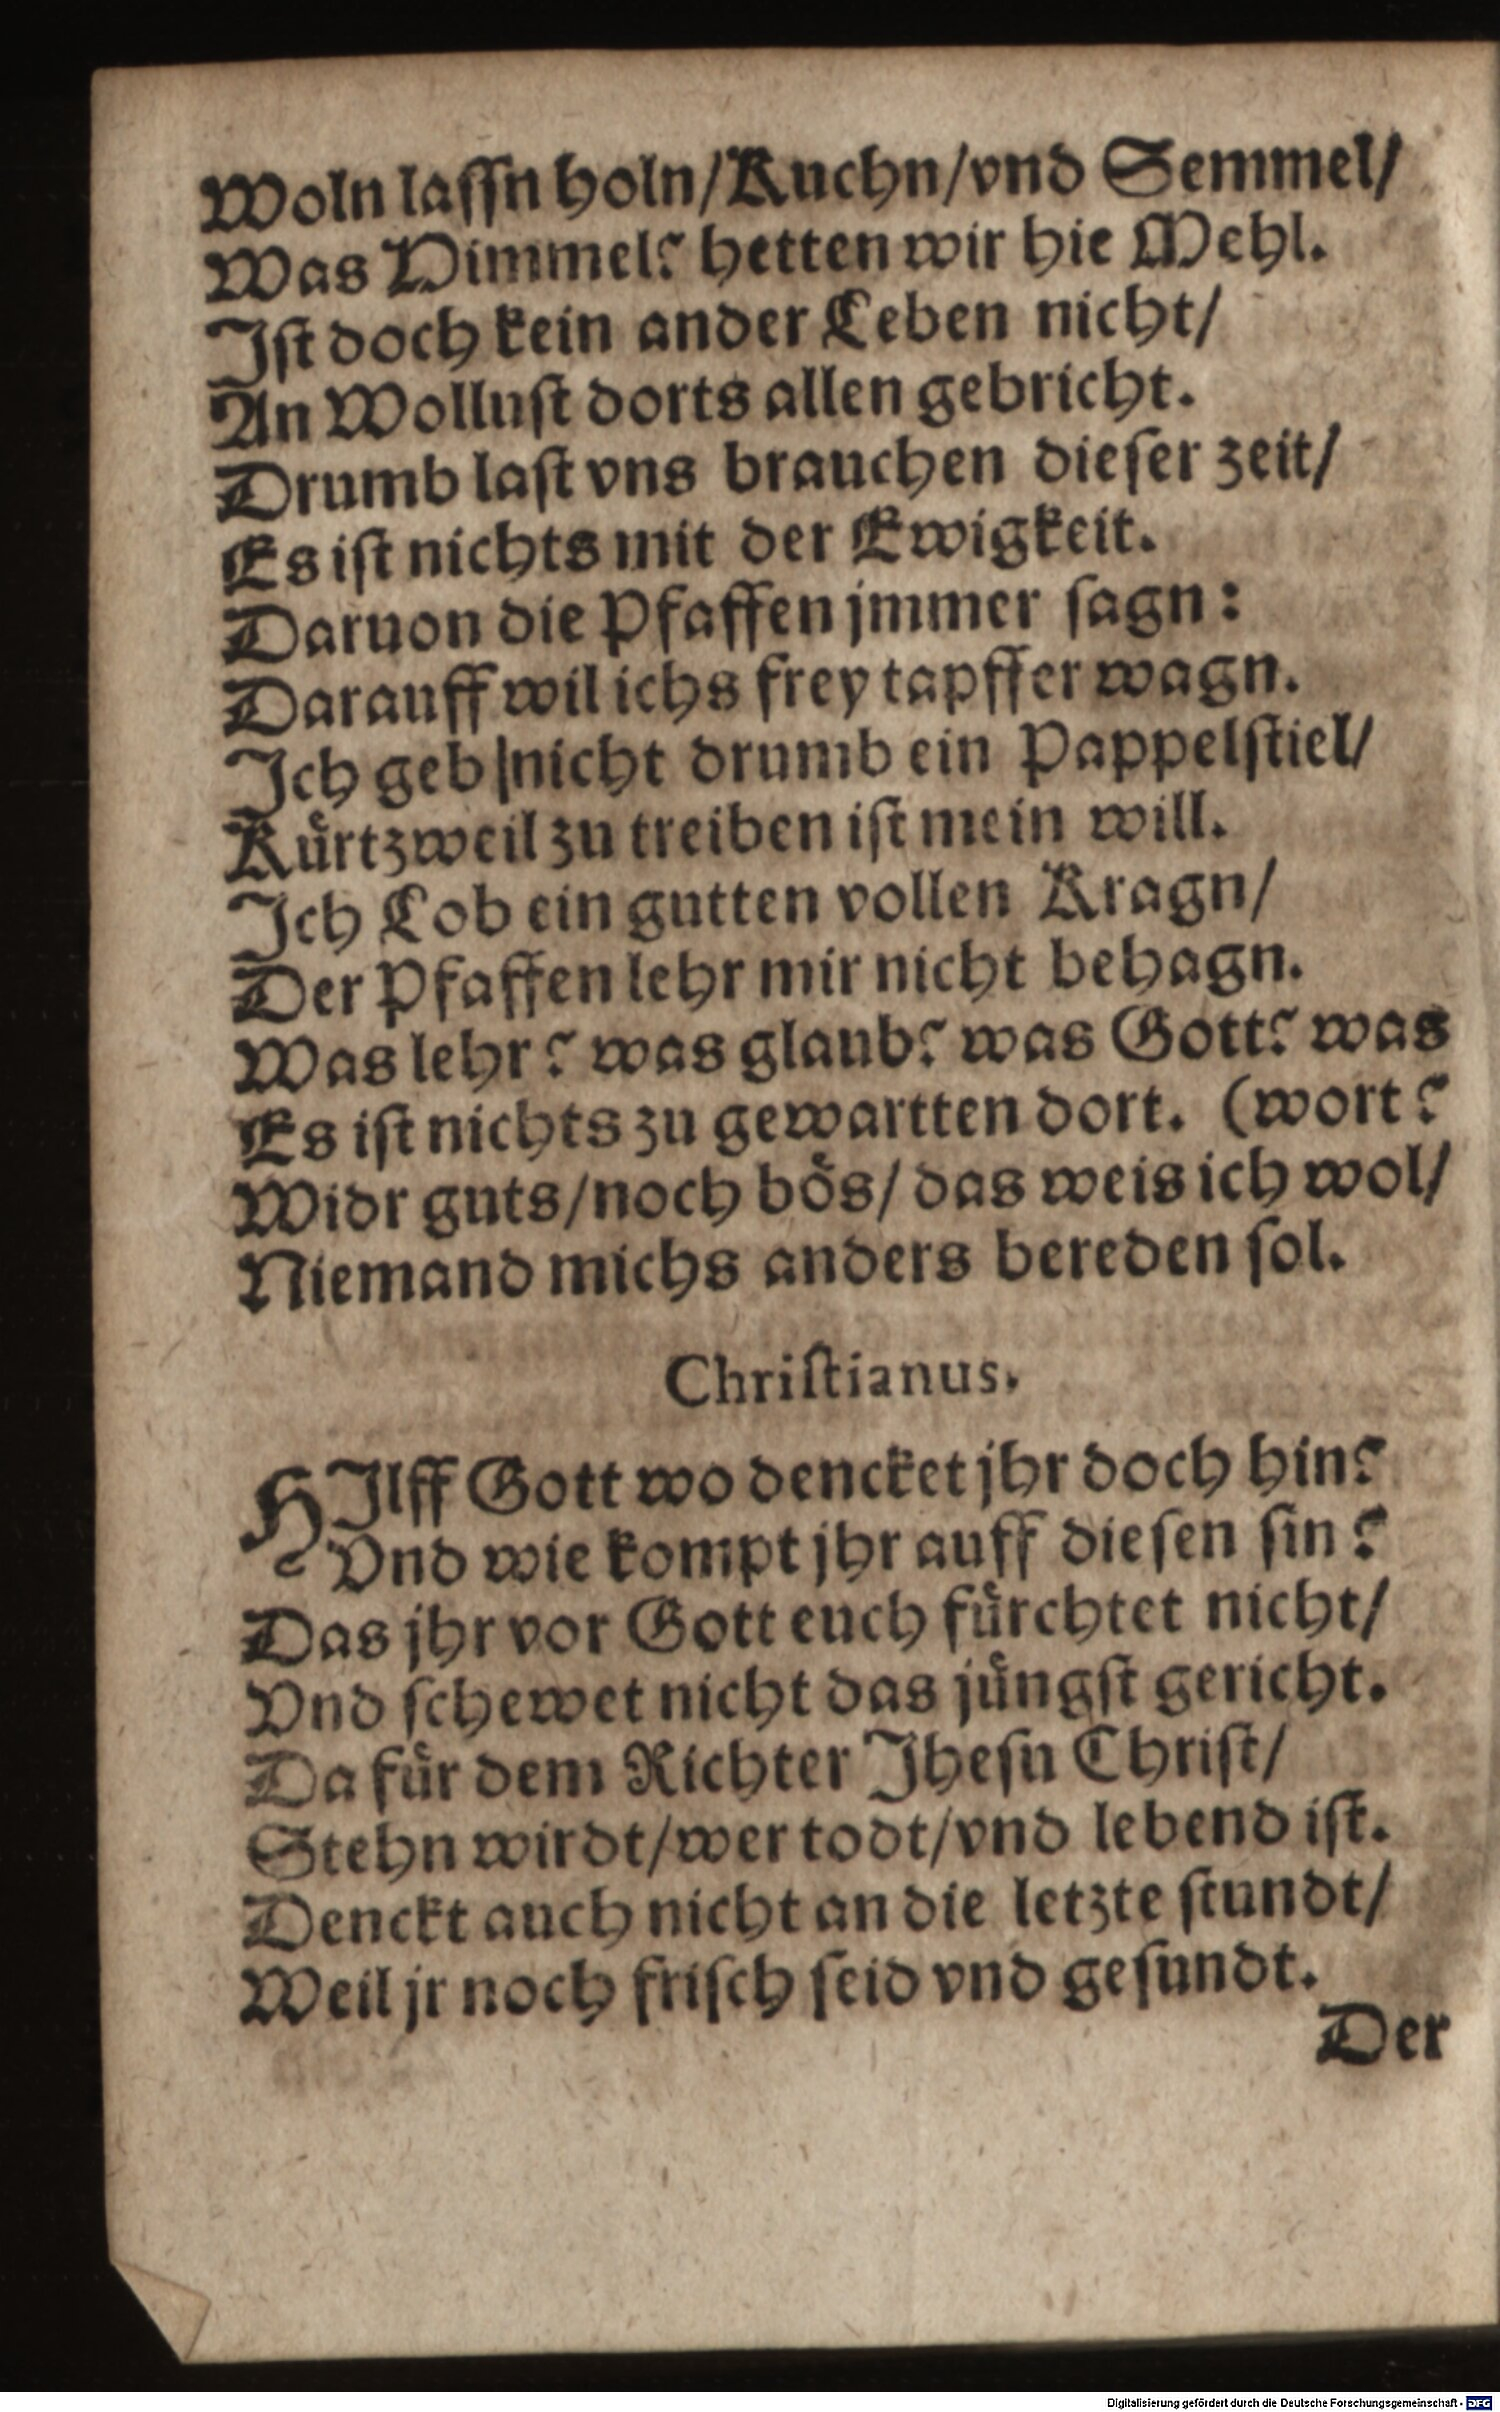 Woln lassn holn/Kuchn/vnd Semmel/
Was Himmel? hetten wir hie Mehl.
Jst doch kein ander Leben nicht/
An Wollust dorts allen gebricht.
Drumb last vns brauchen dieser zeit/
Es ist nichts mit der Ewigkeit.
Daruon die Pfaffen jmmer sagn:
Darauff wil ichs frey tapffer wagn.
Jch geb nicht drumb ein Pappelstiel/
Kürtzweil zu treiben ist mein will.
Jch Lob ein gutten vollen Kragn/
Der Pfaffen lehr mir nicht behagn.
Was lehr? was glaub? was Gott? was
Es ist nichts zu gewartten dort. (wort?
Widr guts/noch bös/ das weis ich wol/
Niemand michs anders bereden sol.
Christianus.
HJlff Gott wo dencket jhr doch hin?
Vnd wie kompt jhr auff diesen sin?
Das jhr vor Gott euch fürchtet nicht/
Vnd schewet nicht das jüngst gericht.
Da für dem Richter Jhesu Christ/
Stehn wirdt/wer todt/vnd lebend ist.
Denckt auch nicht an die letzte stundt/
Weil jr noch frisch seid vnd gesundt.
Der
Digitalisierung gefördert durch die Deutsche Forschungsgemeinschaft - DFG